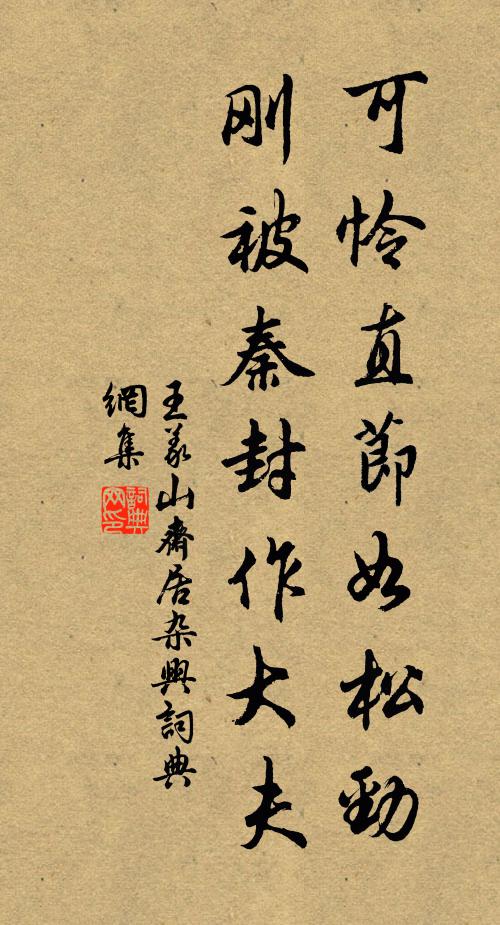 可怜直節如松勁
刚被秦封作大夫
王义山齋居杂興詞典
網集
詞典
网印